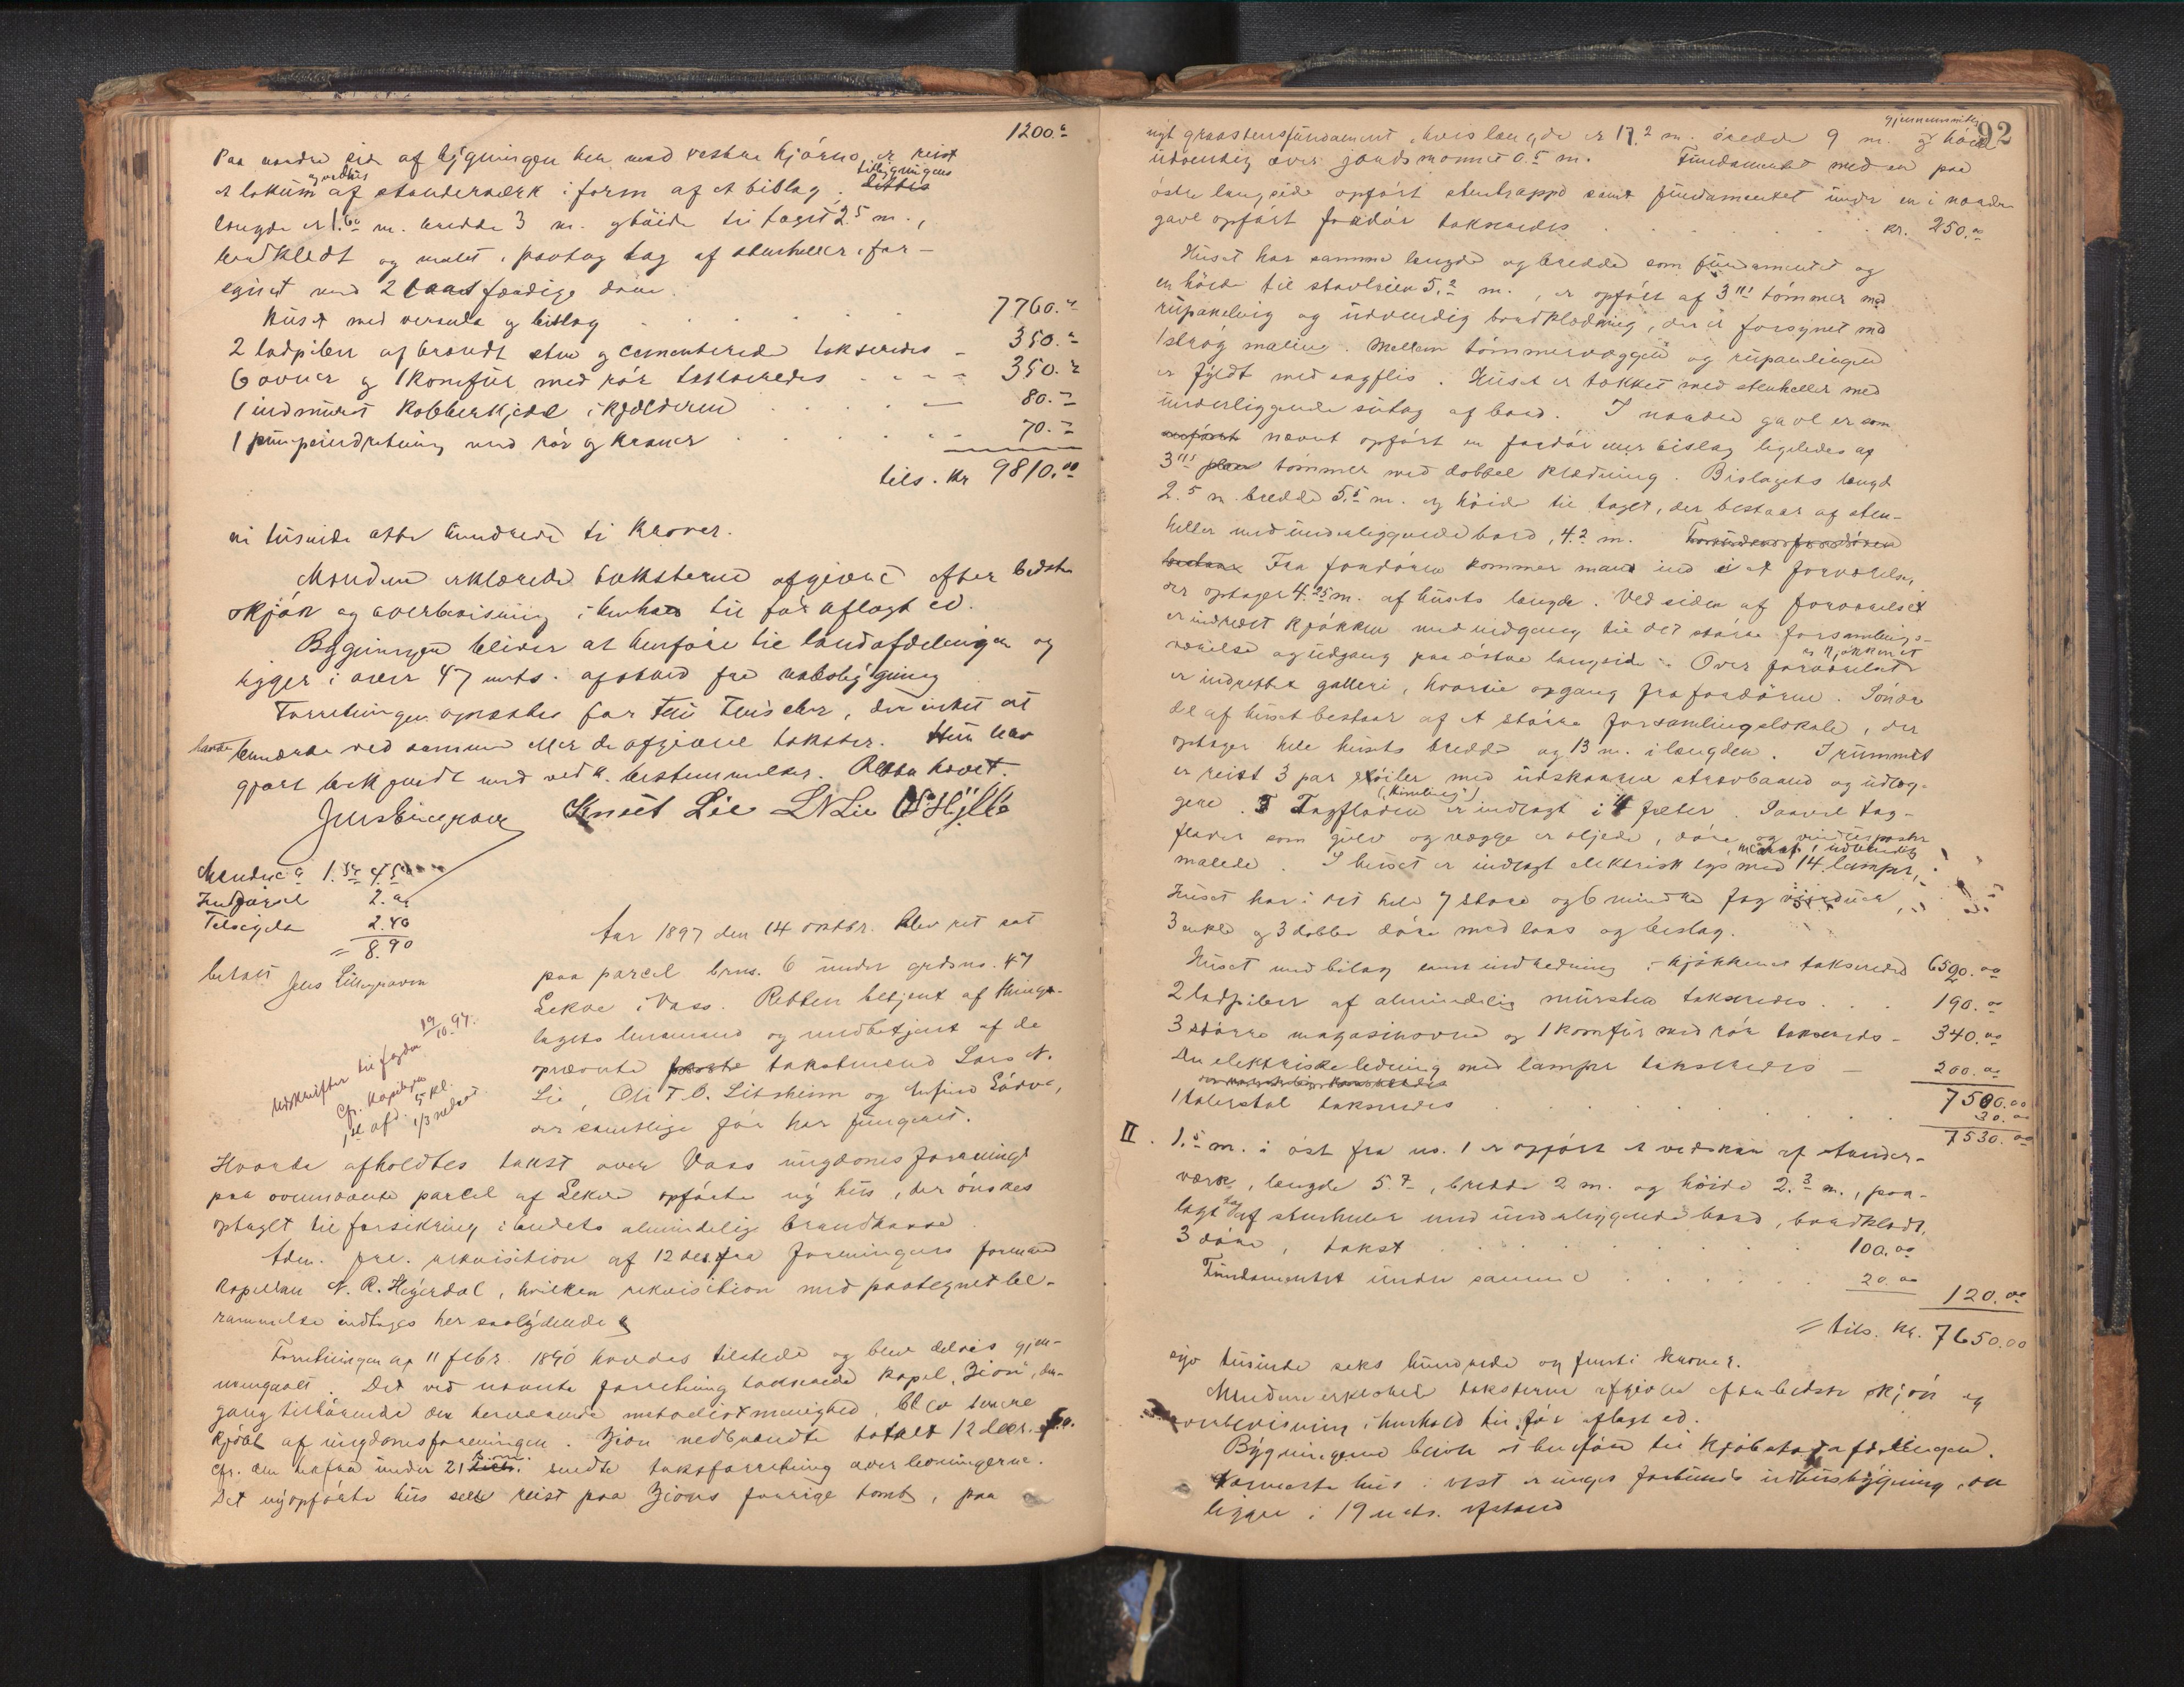 1200.
Paa nordre side af bygningen hen mod vestre hjørne er reist
og vedhus tilbygningens
et lokum af stenderværk i form af et bislag.
længde er 1.60 m. bredde 3 m. og høide til taget 2.5 m.,
bordklædt og malet, paatag tag af stenheller, for-
synet med 2 færdige døre.
Huset med veranda og bislag 7760.
2 ladpiber af brændt sten og cementerede takseredes - 350.
6 ovner og 1 komfür med rør takseredes 350.
1 indmüret kobberkjedel i kjelderen 80.
1 pümpeindretning med rør og kraner 70.
tils. kr 9810.00
ni tüsinde otte hündrede ti kroner.
Mændene erklærede taksterne afgivne efter bedste
skjøn og overbevisning i henhold til før aflagt ed.
Bygningen bliver at henføre til landafdelingen og
ligger i over 47 mts. afstand fra nabobygning
Forretningen oplæstes for Frü Fleischer, der intet at
havde bemærke ved samme eller de afgivne takster. Hün blev
gjort bekjendt med vedk. bestemmelser. Retten hævet.
Jens Lillegraven Knüt Lie L N Lie
Mændene á 1.50 4.50
Indførsel 2.00
Telsedler 2.40
= 8.90
betalt Jens Lillegraven
19/10.97.
Udskrifter til fogden
Cfr. Kapitlers
1ste afd. 5 kl.
1/3 nedsat.
Aar 1897 den 14 oktbr. blev ret sat
paa parcel brns. 6 ünder grdsno. 47
Lekve i Voss. Retten betjent af things-
lagets lensmand og medbetjent af de
opnævnte takstmænd Lars N.
Lie, Ole T. O. Litsheim og
der samtlige før har füngeret.
Hvorda afholdtes takst over Voss üngdomsforenings
paa ovennævnte parcel af Lekve opførte ny hüs, der ønskes
optaget til forsikring i landets almindelige brandkasse.
Adm. frl. rekvisition af 12 des. fra foreningens formand
Kapellan N. R. Hegerdal, hvilken rekvisition med paategnet be-
rammelse indtages her saalydende
Forretningen af 11 febr. 1890 havdes tilstede og blev delvis gjen-
nemgaaet. Det ved nævnte forretning takserede kapel, Zion, den-
gang tilhørende den herværende metodistmenighed, blev senere
kjøbt af üngdomsforeningen. Zion nedbrændte totalt 12 decr.
cfr. den herfra ünder 21 s.m. sendte taksforretning over levningerne.
Det nyopførte hüs reist paa Zions forrige tomt, paa
92
gjennemsnitlig
nyt graastensfündament, hvis længde er 17.2 m. bredde 9 m. og høide
üdvendig over jordsmonnet 0.5 m. Fündamentet med en paa
østre langside opført stentrappe samt fündamentet ünder en i nordre
gavl opført fordør takseredes kr. 250.00
Huset har samme længde og bredde som fündamentet og
en høide til stavleien 5.2 m., er opført af 3"s tømmer med
rüpaneling og üdvendig bordklædning, der er forsynet med
1 strøg maling. Mellem tømmervæggen og rüpanelingen
er fyldt med sagflis. Hüset er tækket med stenheller med
ünderliggende sütag af bord. I nordre gavl er som
nævnt opført en fordør eller bislag ligeledes af
3"s tømmer med dobbel klædning. Bislagets længde
2.5 m. bredde 5.5 m. og høide til taget, der bestaar af sten-
heller med ünderliggende bord, 4.2 m.
Fra fordøren kommer mand ind i et forværelse,
der optager 4.25 m. af hüsets længde. Ved siden af forværelset
er indredet kjøkken med nedgang til det større forsamlings-
værelse og üdgang paa østre langside. Over forværelset
og kjøkkenet
er indrettet galleri, hvortil opgang fra fordøren. Søndre
del af hüset bestaar af et større forsamlingslokale, der
optager hele hüsets bredde og 13 m. i længden. I rümmet
er reist 3 par søiler med üdskaarne strævbaand og üdlæg-
gere. Tagfladen (himling) er indlagt i 4 felter. Saavel tag-
flader som gülv og vægge er oljede, døre og vindüesposter
malede. I hüset er indlagt elektrisk lys med 14 lamper,
Hüset har i det hele 7 store og 6 mindre fag vindüer,
3 enkle og 3 doble døre med laas og beslag.
Hüset med bilag samt indredning i kjøkkenet takseredes 6520.00
2 ladpiber af almindelig mürsten takseredes 190.00
3 større magasinovne og 1 komfür med rør takseredes - 340.00
Den elektriske ledning med lamper takseredes - 200.00
1 talerstol takseredes
7500.00
30.00
7530.00
II. 1.5 m. i øst fra no. 1 er opført et vedskür af stender-
værk, længde 5.7, bredde 2 m. og høide 2.3 m., paa-
lagt tag af stenheller med ünderliggende bord, bordklædt,
3 døre, takst 100.00
Fündamentet ünder samme 20.00
120.00
= tils. kr. 7650.00
syv tüsinde seks hündrede og femti kroner.
Mændene erklærede taksterne afgivne efter bedste skjøn og
overbevisning i henhold til før aflagt ed.
Bygningerne bliver at henføre til kjøbstadafdelingen.
Nærmeste hüs i vest er ünges forbünds üdhüsbygning, der
ligger i 19 mts. afstand